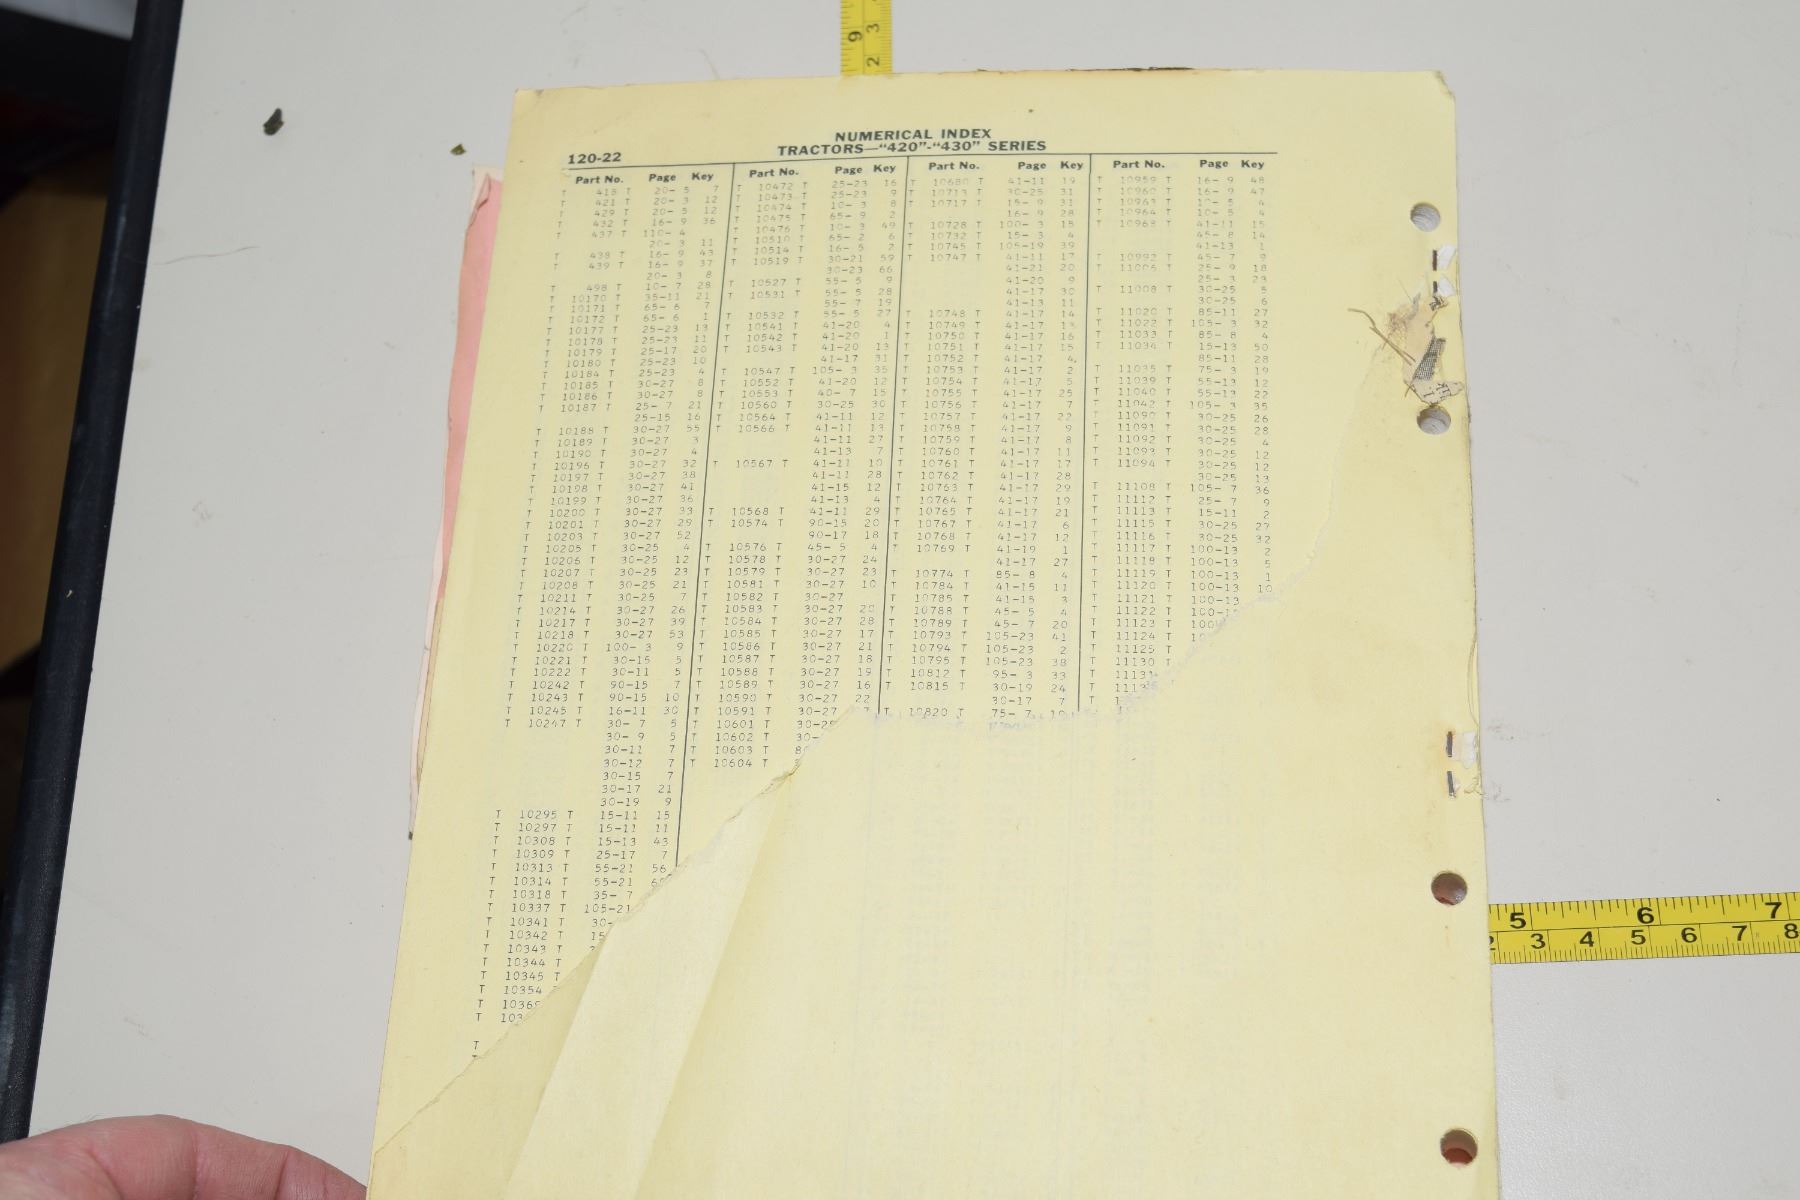 NUMERICAL INDEX
TRACTORS—"420"-"430" SERIES
120-22
Part No. Page Key
T 418 T 20- 5 7
T 421 T 20- 3 12
T 429 T 20- 5 12
T 432 T 16- 9 36
T 437 T 110- 4
20- 3 11
T 438 T 16- 9 43
T 439 T 16- 9 37
20- 3 8
T 498 T 10- 7 28
T 10170 T 35-11 21
T 10171 T 65- 6 7
T 10172 T 65- 6 1
T 10177 T 25-23 13
T 10178 T 25-23 11
T 10179 T 25-17 20
T 10180 T 25-23 10
T 10184 T 25-23 4
T 10185 T 30-27 8
T 10186 T 30-27 8
T 10187 T 25- 7 21
25-15 16
T 10188 T 30-27 55
T 10189 T 30-27 3
T 10190 T 30-27 4
T 10196 T 30-27 32
T 10197 T 30-27 38
T 10198 T 30-27 41
T 10199 T 30-27 36
T 10200 T 30-27 33
T 10201 T 30-27 29
T 10203 T 30-27 52
T 10205 T 30-25 4
T 10206 T 30-25 12
T 10207 T 30-25 23
T 10208 T 30-25 21
T 10211 T 30-25 7
T 10214 T 30-27 26
T 10217 T 30-27 39
T 10218 T 30-27 53
T 10220 T 100- 3 9
T 10221 T 30-15 5
T 10222 T 30-11 5
T 10242 T 90-15 7
T 10243 T 90-15 10
T 10245 T 16-11 30
T 10247 T 30- 7 5
30- 9 5
30-11 7
30-12 7
30-15 7
30-17 21
30-19 9
T 10295 T 15-11 15
T 10297 T 15-11 11
T 10308 T 15-13 43
T 10309 T 25-17 7
T 10313 T 55-21 56
T 10314 T 55-21
T 10318 T 35- 7
T 10337 T 105-21
T 10341 T 30-
T 10342 T 15
T 10343 T
T 10344 T
T 10345 T
T 10354
T 1036
T 103
T
Part No. Page Key
T 10472 T 25-23 16
T 10473 T 25-23 9
T 10474 T 10- 3 8
T 10475 T 65- 9 2
T 10476 T 10- 3 49
T 10510 T 65- 2 6
T 10514 T 16- 5 2
T 10519 T 30-21 59
30-23 66
T 10527 T 55- 5 9
T 10531 T 55- 5 28
55- 7 19
T 10532 T 55- 5 27
T 10541 T 41-20 4
T 10542 T 41-20 1
T 10543 T 41-20 13
41-17 31
T 10547 T 105- 3 35
T 10552 T 41-20 12
T 10553 T 40- 7 15
T 10560 T 30-25 30
T 10564 T 41-11 12
T 10566 T 41-11 13
41-11 27
41-13 7
T 10567 T 41-11 10
41-11 28
41-15 12
41-13 4
T 10568 T 41-11 29
T 10574 T 90-15 20
90-17 18
T 10576 T 45- 5 4
T 10578 T 30-27 24
T 10579 T 30-27 23
T 10581 T 30-27 10
T 10582 T 30-27
T 10583 T 30-27 20
T 10584 T 30-27 28
T 10585 T 30-27 17
T 10586 T 30-27 21
T 10587 T 30-27 18
T 10588 T 30-27 19
T 10589 T 30-27 16
T 10590 T 30-27 22
T 10591 T 30-27 7
T 10601 T 30-25
T 10602 T 30-
T 10603 T 80
T 10604 T
Part No. Page Key
T 10680 T 41-11 19
T 10713 T 30-25 31
T 10717 T 15- 9 31
16- 9 28
T 10728 T 100- 3 15
T 10732 T 15- 3 4
T 10745 T 105-19 39
T 10747 T 41-11 17
41-21 20
41-20 9
41-17 30
41-13 11
T 10748 T 41-17 14
T 10749 T 41-17 13
T 10750 T 41-17 16
T 10751 T 41-17 15
T 10752 T 41-17 4
T 10753 T 41-17 2
T 10754 T 41-17 5
T 10755 T 41-17 25
T 10756 T 41-17 7
T 10757 T 41-17 22
T 10758 T 41-17 9
T 10759 T 41-17 8
T 10760 T 41-17 11
T 10761 T 41-17 17
T 10762 T 41-17 28
T 10763 T 41-17 29
T 10764 T 41-17 19
T 10765 T 41-17 21
T 10767 T 41-17 6
T 10768 T 41-17 12
T 10769 T 41-19 1
41-17 27
T 10774 T 85- 8 4
T 10784 T 41-15 11
T 10785 T 41-15 3
T 10788 T 45- 5 4
T 10789 T 45- 7 20
T 10793 T 105-23 41
T 10794 T 105-23 2
T 10795 T 105-23 38
T 10812 T 95- 3 33
T 10815 T 30-19 24
30-17 7
T 10820 T 75- 7 10
Part No. Page Key
T 10959 T 16- 9 48
T 10960 T 16- 9 47
T 10963 T 10- 5 4
T 10964 T 10- 5 4
T 10968 T 41-11 15
45- 8 14
41-13 1
T 10992 T 45- 7 9
T 11006 T 25- 9 18
25- 3 23
T 11008 T 30-25 5
30-25 6
T 11020 T 85-11 27
T 11022 T 105- 3 32
T 11033 T 85- 8 4
T 11034 T 15-13 50
85-11 28
T 11035 T 75- 3 19
T 11039 T 55-13 12
T 11040 T 55-13 22
T 11042 T 105- 3 35
T 11090 T 30-25 26
T 11091 T 30-25 28
T 11092 T 30-25 4
T 11093 T 30-25 12
T 11094 T 30-25 12
30-25 13
T 11108 T 105- 7 36
T 11112 T 25- 7 9
T 11113 T 15-11 2
T 11115 T 30-25 27
T 11116 T 30-25 32
T 11117 T 100-13 2
T 11118 T 100-13 5
T 11119 T 100-13 1
T 11120 T 100-13 10
T 11121 T 100-13
T 11122 T 100-1
T 11123 T 100
T 11124 T 10
T 11125 T
T 11130 T
T 1113
T 111
T 1
9 2 3
5 6 7
2 3 4 5 6 7 8